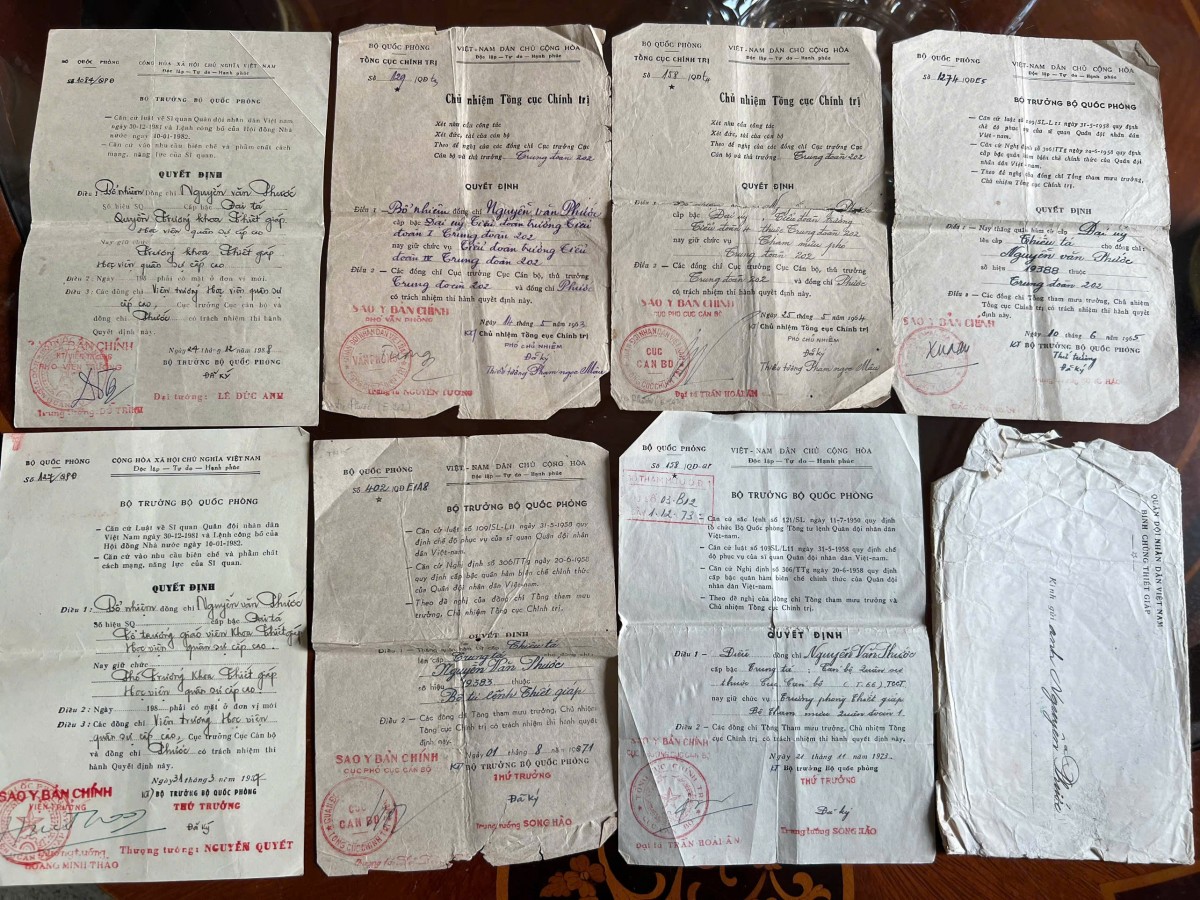 BỘ QUỐC PHÒNG
Số 1084/QPĐ
CỘNG HÒA XÃ HỘI CHỦ NGHĨA VIỆT NAM
Độc lập — Tự do — Hạnh phúc
BỘ TRƯỞNG BỘ QUỐC PHÒNG
— Căn cứ luật về Sĩ quan Quân đội nhân dân Việt nam
ngày 30-12-1981 và Lệnh công bố của Hội đồng Nhà
nước ngày 10-01-1982.
— Căn cứ vào nhu cầu biên chế và phẩm chất cách
mạng, năng lực của Sĩ quan.
QUYẾT ĐỊNH
Điều 1: Bổ nhiệm Đồng chí Nguyễn văn Phước
Số hiệu SQ cấp bậc Đại tá
Quyền Trưởng khoa Thiết giáp
Học viện quân sự cấp cao
Nay giữ chức
Trưởng khoa Thiết giáp
Học viện quân sự cấp cao
Điều 2: Ngày 198 phải có mặt ở đơn vị mới.
Điều 3: Các đồng chí Viện trưởng Học viện quân sự
cấp cao, Cục Trưởng Cục cán bộ và
đồng chí Phước có trách nhiệm thi hành
Quyết định này
Ngày 24 tháng 12 năm 1988
BỘ TRƯỞNG BỘ QUỐC PHÒNG
Đã ký
Đại tướng: LÊ ĐỨC ANH
SAO Y BẢN CHÍNH
BỘ QUỐC PHÒNG
TỔNG CỤC CHÍNH TRỊ
Số 129 /QĐ
VIỆT-NAM DÂN CHỦ CỘNG HÒA
Độc lập — Tự do — Hạnh phúc
Chủ nhiệm Tổng cục Chính trị
Xét nhu cầu công tác
Xét đức, tài của cán bộ
Theo đề nghị của các đồng chí Cục trưởng Cục
Cán bộ và thủ trưởng Trung đoàn 202
QUYẾT ĐỊNH
Điều 1 — Bổ nhiệm đồng chí Nguyễn văn Phước
cấp bậc Đại uý Tiểu đoàn trưởng Tiểu
đoàn I Trung đoàn 202
nay giữ chức vụ Tiểu đoàn trưởng Tiểu
đoàn IV Trung đoàn 202
Điều 2 — Các đồng chí Cục trưởng Cục Cán bộ, thủ trưởng
Trung đoàn 202 và đồng chí Phước
có trách nhiệm thi hành quyết định này.
Ngày 14 tháng 5 năm 1963
KT/ Chủ nhiệm Tổng cục Chính trị
PHÓ CHỦ NHIỆM
Đã ký
Thiếu tướng Phạm ngọc Mậu
SAO Y BẢN CHÍNH
PHÓ VĂN PHÒNG
BỘ QUỐC PHÒNG
TỔNG CỤC CHÍNH TRỊ
Số 158 /QĐ
VIỆT-NAM DÂN CHỦ CỘNG HÒA
Độc lập — Tự do — Hạnh phúc
Chủ nhiệm Tổng cục Chính trị
Xét nhu cầu công tác
Xét đức, tài của cán bộ
Theo đề nghị của các đồng chí Cục trưởng Cục
Cán bộ và thủ trưởng Trung đoàn 202
QUYẾT ĐỊNH
Điều 1
cấp bậc Đại uý, Tiểu đoàn trưởng
Tiểu đoàn 4 thuộc Trung đoàn 202
nay giữ chức vụ Tham mưu phó
Trung đoàn 202
Điều 2 — Các đồng chí Cục trưởng Cục Cán bộ, thủ trưởng
Trung đoàn 202 và đồng chí
có trách nhiệm thi hành quyết định này.
Ngày 25 tháng 5 năm 1964
KT/ Chủ nhiệm Tổng cục Chính trị
PHÓ CHỦ NHIỆM
Đã ký
Thiếu tướng Phạm ngọc Mậu
SAO Y BẢN CHÍNH
CỤC PHÓ CỤC CÁN BỘ
CỤC CÁN BỘ
Đại tá TRẦN HOÀI ÂN
BỘ QUỐC PHÒNG
Số 1274 /QĐE5
VIỆT-NAM DÂN CHỦ CỘNG HÒA
Độc lập — Tự do — Hạnh phúc
BỘ TRƯỞNG BỘ QUỐC PHÒNG
109/SL-L11 ngày 31-5-1958 quy định
chế độ phục vụ của sĩ quan Quân đội nhân dân
Việt-nam.
— Căn cứ Nghị định số 306/TTg ngày 20-6-1958 quy định
cấp bậc quân hàm biên chế chính thức của Quân đội
nhân dân Việt-nam.
— Theo đề nghị của đồng chí Tổng tham mưu trưởng,
Chủ nhiệm Tổng cục Chính trị.
QUYẾT ĐỊNH
Điều 1 — Nay thăng quân hàm từ cấp Đại uý
lên cấp Thiếu tá cho đồng chí:
Nguyễn văn Phước
số hiệu 19388 thuộc
Trung đoàn 202
Điều 2 — Các đồng chí Tổng tham mưu trưởng, Chủ nhiệm
Tổng cục Chính trị có trách nhiệm thi hành quyết
định này.
Ngày 10 tháng 6 năm 1965
KT BỘ TRƯỞNG BỘ QUỐC PHÒNG
Thứ trưởng
Đã ký
SAO Y BẢN CHÍNH
BỘ QUỐC PHÒNG
Số 127/QPĐ
CỘNG HÒA XÃ HỘI CHỦ NGHĨA VIỆT NAM
Độc lập — Tự do — Hạnh phúc
BỘ TRƯỞNG BỘ QUỐC PHÒNG
— Căn cứ Luật về Sĩ quan Quân đội nhân dân
Việt Nam ngày 30-12-1981 và Lệnh công bố của
Hội đồng Nhà nước ngày 10-01-1982.
— Căn cứ vào nhu cầu biên chế và phẩm chất
cách mạng, năng lực của Sĩ quan.
QUYẾT ĐỊNH
Điều 1: Bổ nhiệm đồng chí Nguyễn văn Phước
Số hiệu SQ cấp bậc Đại tá
Tổ trưởng giáo viên Khoa Thiết giáp
Học viện quân sự cấp cao.
Nay giữ chức
Phó Trưởng khoa Thiết giáp
Học viện quân sự cấp cao
Điều 2: Ngày 198 phải có mặt ở đơn vị mới
Điều 3: Các đồng chí Viện trưởng Học viện
quân sự cấp cao, Cục Trưởng Cục Cán bộ
và đồng chí Phước có trách nhiệm thi
hành Quyết định này.
Ngày 31 tháng 3 năm
KT) BỘ TRƯỞNG BỘ QUỐC PHÒNG
THỨ TRƯỞNG
Đã ký
Thượng tướng: NGUYỄN QUYẾT
SAO Y BẢN CHÍNH
VIỆN TRƯỞNG
HOÀNG MINH THẢO
BỘ QUỐC PHÒNG
Số 402 /QĐE1A8
VIỆT-NAM DÂN CHỦ CỘNG HÒA
Độc lập — Tự do — Hạnh phúc
BỘ TRƯỞNG BỘ QUỐC PHÒNG
— Căn cứ luật số 109/SL-L11 ngày 31-5-1958 quy
định chế độ phục vụ của sĩ quan Quân đội nhân
dân Việt-nam.
— Căn cứ Nghị định số 306/TTg ngày 20-6-1958
quy định cấp bậc quân hàm biên chế chính thức
của Quân đội nhân dân Việt-nam.
— Theo đề nghị của đồng chí Tổng tham mưu
trưởng, Chủ nhiệm Tổng cục Chính trị.
QUYẾT ĐỊNH
Thiếu tá
lên cấp: Trung tá
Nguyễn Văn Phước
số hiệu 19383 thuộc
Bộ tư lệnh Thiết giáp
Điều 2 — Các đồng chí Tổng tham mưu trưởng, Chủ nhiệm
Tổng cục Chính trị có trách nhiệm thi hành quyết
định này.
Ngày 01 tháng 8 năm 1971
KT BỘ TRƯỞNG BỘ QUỐC PHÒNG
THỨ TRƯỞNG
Đã ký
Trung tướng SONG HÀO
SAO Y BẢN CHÍNH
CỤC PHÓ CỤC CÁN BỘ
CỤC CÁN BỘ
BỘ QUỐC PHÒNG
Số 158 /QĐ-QP
VIỆT-NAM DÂN CHỦ CỘNG HÒA
Độc lập — Tự do — Hạnh phúc
03-B12
1-12-73
BỘ TRƯỞNG BỘ QUỐC PHÒNG
— Căn cứ sắc lệnh số 121/SL ngày 11-7-1958 quy định
tổ chức Bộ Quốc phòng Tổng tư lệnh Quân đội nhân dân
Việt-nam.
— Căn cứ luật số 109SL/L11 ngày 31-5-1958 quy định chế
độ phục vụ của sĩ quan Quân đội nhân dân Việt-nam.
— Căn cứ Nghị định số 306/TTg ngày 20-6-1958 quy định
cấp bậc quân hàm biên chế chính thức của Quân đội nhân
dân Việt-nam.
— Theo đề nghị của đồng chí Tổng tham mưu trưởng và
Chủ nhiệm Tổng cục Chính trị.
QUYẾT ĐỊNH
Điều 1 — Điều Nguyễn Văn Phước
cấp bậc Trung tá; Cán bộ quân sự
thuộc Cục Cán bộ (T.66) TCCT
nay giữ chức vụ Trưởng phòng Thiết giáp
Bộ Tham mưu Quân đoàn 1.
Điều 2 — Các đồng chí Tổng Tham mưu trưởng, Chủ nhiệm Tổng
cục Chính trị có trách nhiệm thi hành quyết định này.
Ngày 21 tháng 11 năm 1973.
KT Bộ trưởng Bộ Quốc phòng
THỨ TRƯỞNG
Đã ký
Trung tướng SONG HÀO
SAO Y BẢN CHÍNH
CỤC PHÓ CỤC CÁN BỘ
Đại tá TRẦN HOÀI ÂN
QUÂN ĐỘI NHÂN DÂN VIỆT NAM
BINH CHỦNG THIẾT GIÁP
Kính gửi anh Nguyễn văn Phước